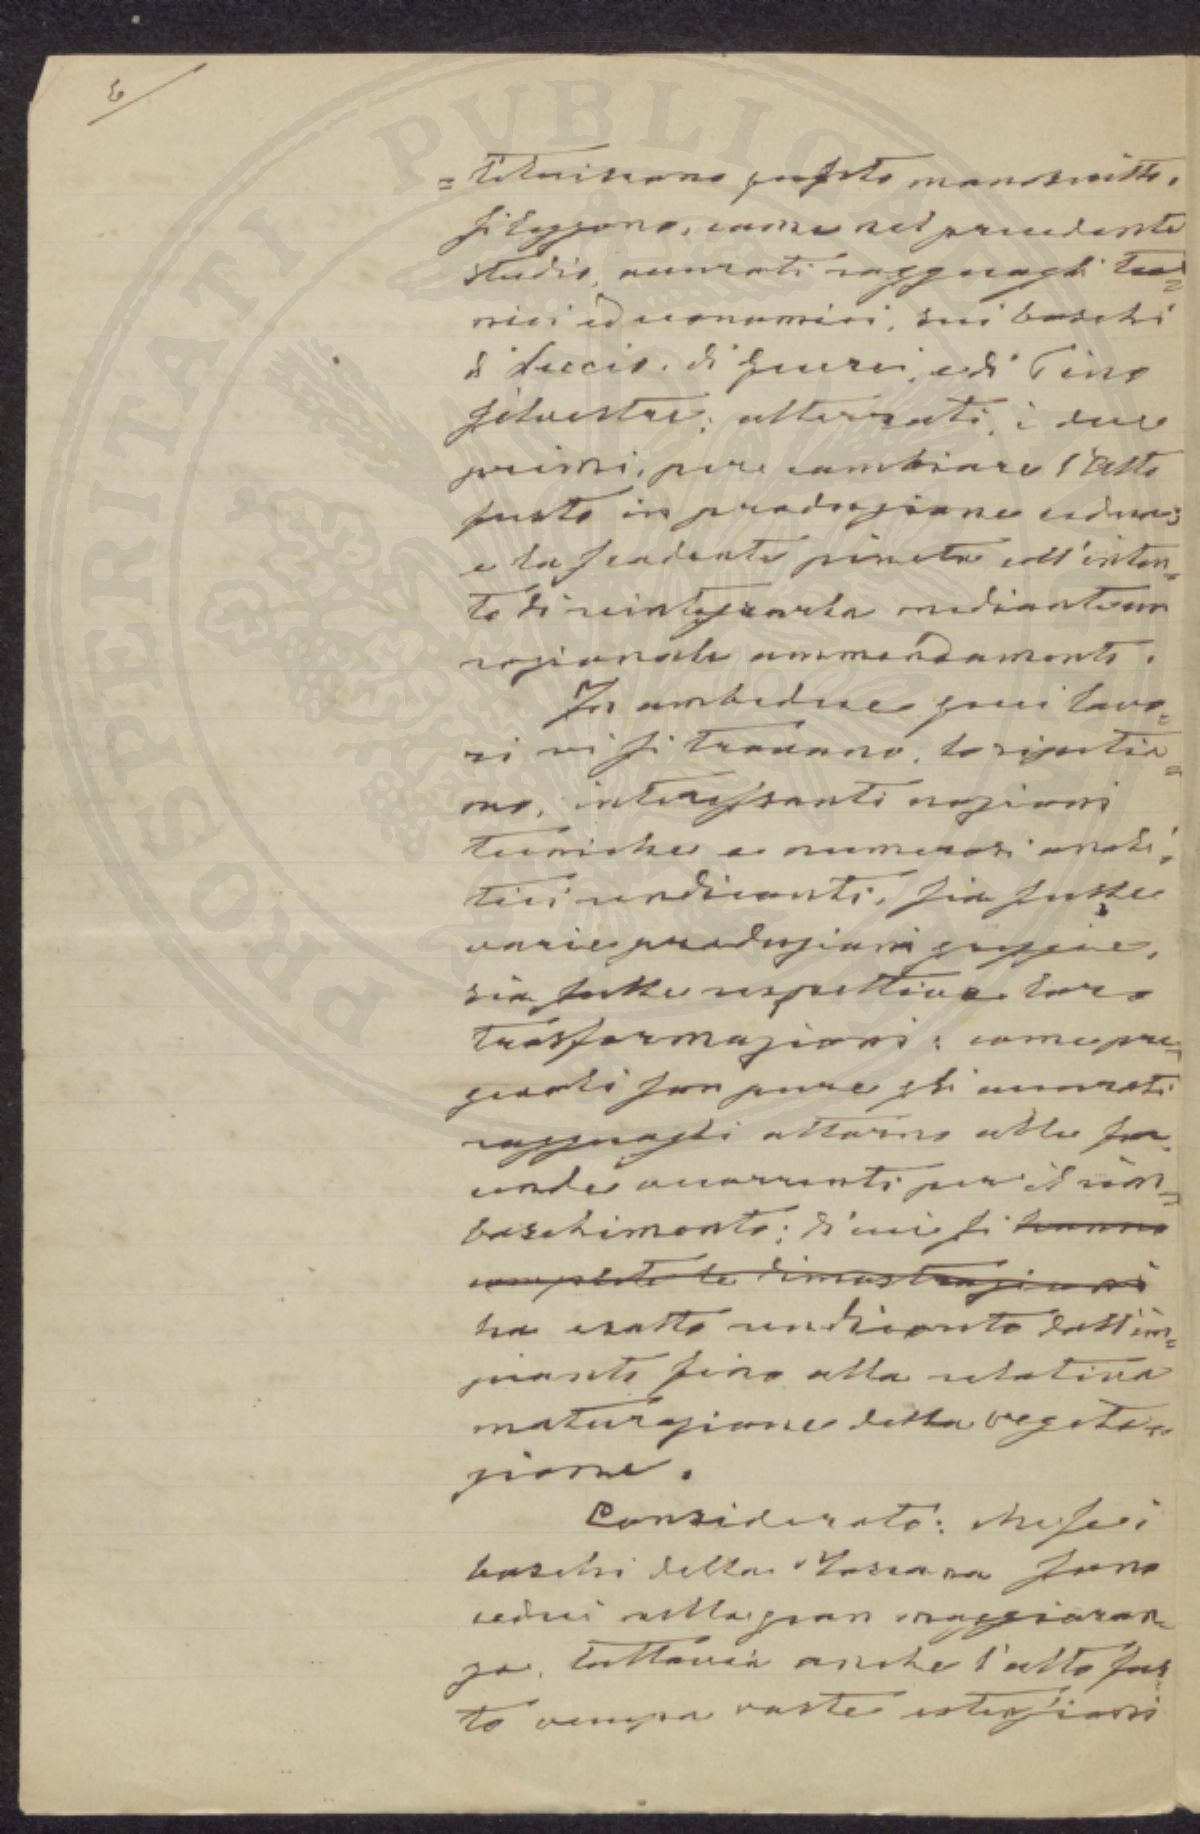 6
=tituiscono questo manoscritto.
si leggono, come nel precedente
studio, accurati ragguagli tec=
nici ed economici, sui boschi
di Leccio. di Querci, e di Pino
silvestre; atterrati, i due
primi, per cambiare l'alto
fusto in produzione cedua;
e la scadente pineta coll'inten=
to di reintegrarla mediante un
razionale ammendamento.
In ambedue quei lavo=
ri vi si trovano, lo ripetia=
mo, interessanti nozioni
tecniche e numerosi anali=
tici rendiconti, sia sulle
varie produzioni greggie,
sia sulle respettive loro
trasformazioni; come pre=
gevoli son pure gli accurati
ragguagli attorno alle fac=
cende occorrenti per il rim=
boschimento; di cui si hanno
complete le dimostrazioni
ha esatto rendiconto dall'im=
pianto fino alla relativa
maturazione della vegeta=
zione.
Considerato: che se i
boschi della Toscana sono
cedui nella gran maggioran=
za, tuttavia anche l'alto fus=
to occupa vaste estensioni
PROSPERITATI PVBLICAE